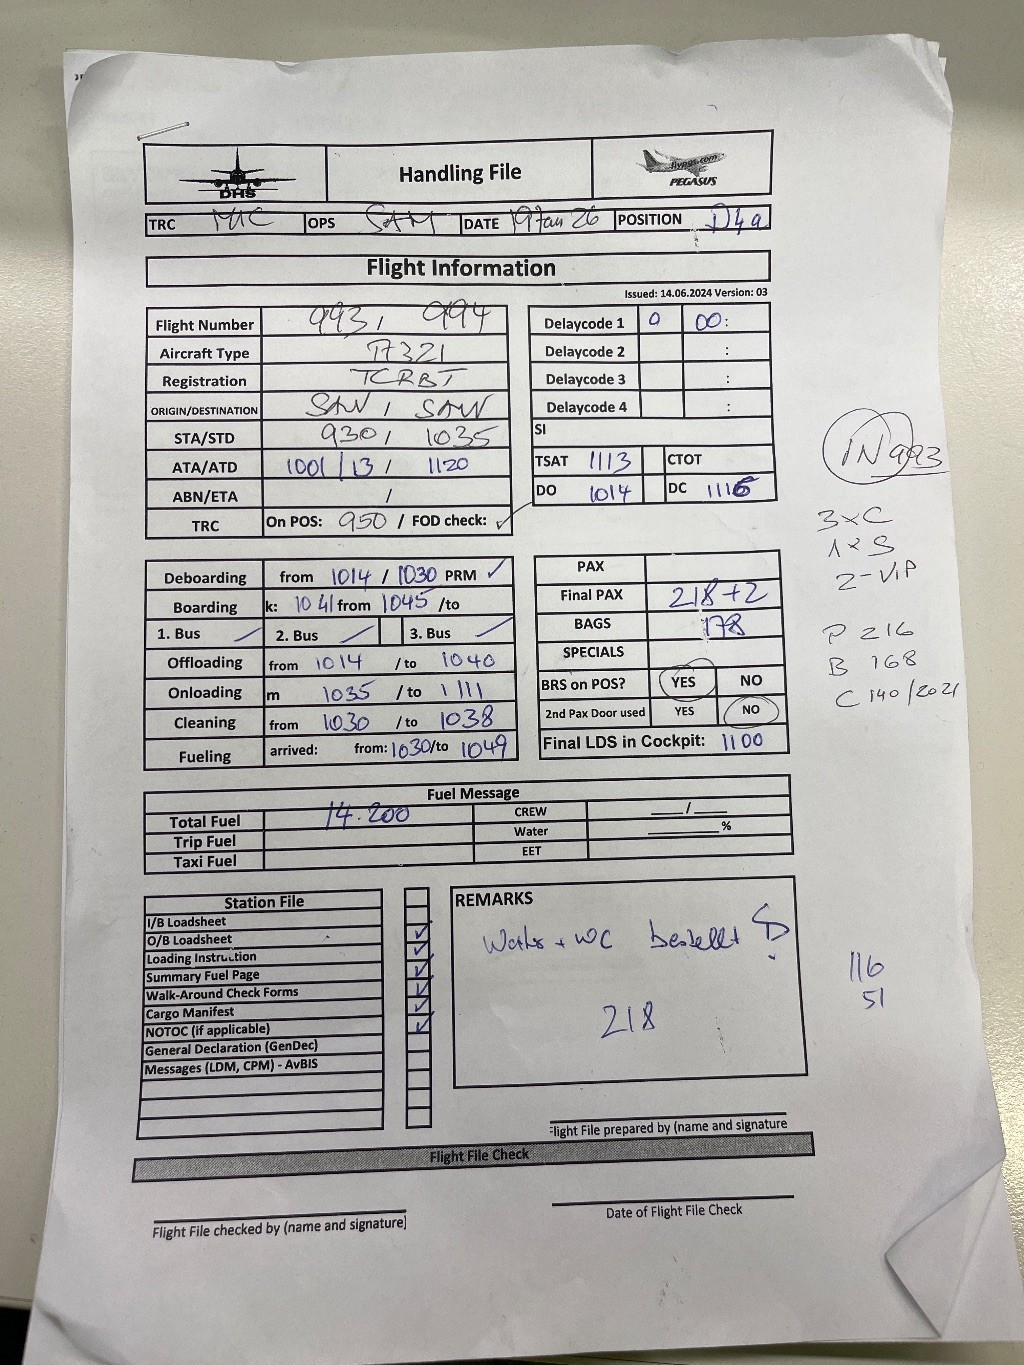 DHS
Handling File
flypgs.com
PEGASUS
TRC MIC OPS SAM DATE 19 Jan 26 POSITION D4a
Flight Information
Issued: 14.06.2024 Version: 03
Flight Number 993 / 994
Aircraft Type A321
Registration TCRBT
ORIGIN/DESTINATION SAW / SAW
STA/STD 930 / 1035
ATA/ATD 1001/13 / 1120
ABN/ETA /
TRC On POS: 950 / FOD check: ✓
Delaycode 1 0 00:
Delaycode 2 :
Delaycode 3 :
Delaycode 4 :
SI
TSAT 1113 CTOT
DO 1014 DC 1116
IN 993
3xC
1xS
2-VIP
P 216
B 168
C 140/2021
Deboarding from 1014 / 1030 PRM ✓
Boarding k: 1041 from 1045 /to
1. Bus 2. Bus 3. Bus
Offloading from 1014 /to 1040
Onloading m 1035 /to 1111
Cleaning from 1030 /to 1038
Fueling arrived: from: 1030/to 1049
PAX
Final PAX 218+2
BAGS 178
SPECIALS
BRS on POS? YES NO
2nd Pax Door used YES NO
Final LDS in Cockpit: 1100
Fuel Message
Total Fuel 14.200 CREW /
Trip Fuel Water %
Taxi Fuel EET
Station File
I/B Loadsheet
O/B Loadsheet ✓
Loading Instruction ✓
Summary Fuel Page ✓
Walk-Around Check Forms ✓
Cargo Manifest ✓
NOTOC (if applicable) ✓
General Declaration (GenDec)
Messages (LDM, CPM) - AvBIS
REMARKS
Water + WC bestellt
218
116
51
Flight File prepared by (name and signature
Flight File Check
Flight File checked by (name and signature)
Date of Flight File Check